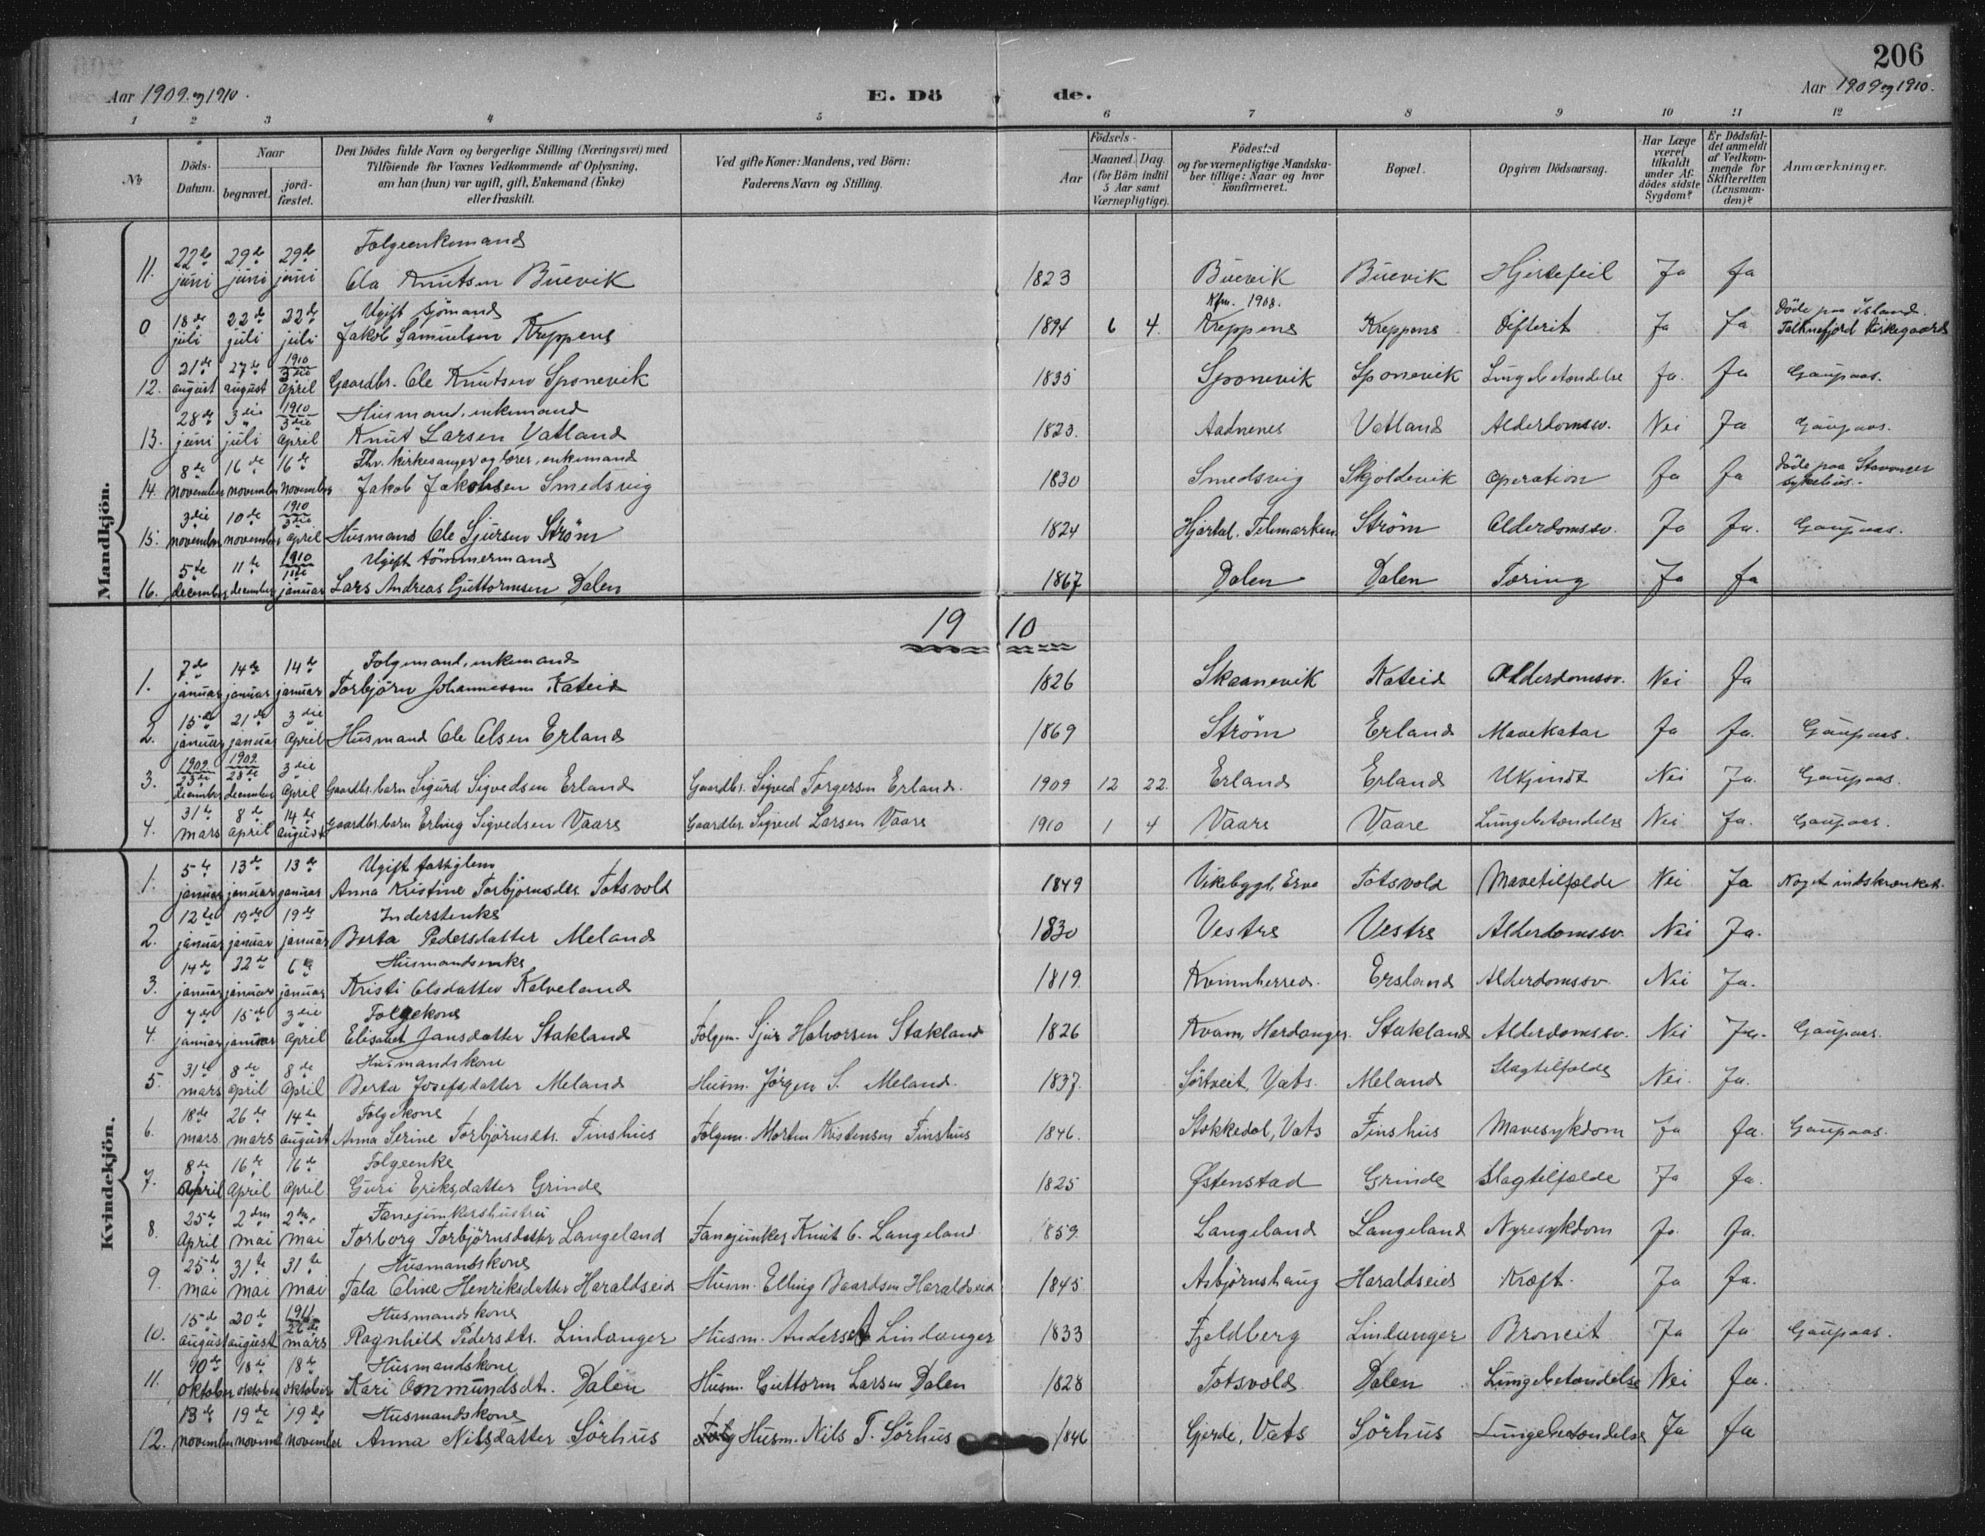 206
Aar 1909 og 1910.
E. Dö de.
Aar 1909 og 1910.
1 2 3 4 5 6 7 8 9 10 11 12
№
Döds-Datum.
Naar
begravet.
jord-fæstet.
Den Dödes fulde Navn og borgerlige Stilling (Næringsvei) med
Tilföiende for Voxnes Vedkommende af Oplysning,
om han (hun) var ugift, gift, Enkemand (Enke)
eller fraskilt.
Ved gifte Koner: Mandens, ved Börn:
Faderens Navn og Stilling.
Födsels-
Aar
Maaned. Dag.
(for Börn indtil
5 Aar samt
Værnepligtige).
Födested
og for værnepligtige Mandska-
ber tillige: Naar og hvor
Konfirmeret.
Bopæl.
Opgiven Dödsaarsag.
Har Læge
været
tilkaldt
under Af-
dödes sidste
Sygdom?
Er Dödsfal-
det anmeldt
af Vedkom-
mende for
Skifteretten
(Lensman-
den)?
Anmærkninger.
Mandkjön.
Folgeenkemand
11. 22de juni 29de juni 29de juni Ola Knutsen Buevik 1823 Buevik Buevik Hjertefeil Ja Ja
Ugift sjömand Kfm. 1908. Döde paa Island.
0 18de juli 22de juli 22de juli Jakob Samuelsen Kreppens 1894 6 4. Kreppens Kreppens Difterit Ja Ja Talknefjord kirkegaard
12. 21de august 27de august 1910 3die April Gaardbr. Ole Knutsen Sponevik 1835 Sponevik Sponevik Lungebetændelse Ja. Ja Gaupaas.
Husmand, enkemand
13. 28de juni 3die juli 1910 3die April Knut Larsen Vatland 1823. Aadnenes Vatland Alderdomssv. Nei Ja Gaupaas.
Fhv. kirkesanger og lærer, enkemand Döde paa Stavanger
14. 8de november 16de november 16de november Jakob Jakobsen Smedsvig 1830 Smedsvig Skjoldevik Operation Ja Ja sykehus.
15. 3die november 10de november 1910 3die April Husmand Ole Sjursen Strøm 1824 Hjartal. Telemarken. Strøm Alderdomssv. Ja Ja. Gaupaas.
Ugift tömmermand
16. 5te december 11te december 1910 11te januar Lars Andreas Guttormsen Dalen 1867 Dalen Dalen Tæring Ja Ja
1910
Folgemand, enkemand
1. 7de januar 14de januar 14de januar Torbjörn Johannessen Kateid 1826 Skaanevik Kateid Alderdomssv. Nei Ja
2. 15de januar 21de januar 3die April Husmand Ole Olsen Erland 1869 Strøm Erland Mavekatar Ja Ja. Gaupaas.
3. 1909 23de december 1909 28de december 3die April Gaardbr. barn Sigurd Sigvedsen Erland Gaardbr. Sigved Torgersen Erland. 1909 12 22. Erland Erland Ukjendt Nei Ja. Gaupaas.
4. 31te mars 8de April 14de August Gaardbr. barn Erling Sigvedsen Vaare Gaardbr. Sigved Larsen Vaare 1910 1 4 Vaare Vaare Lungebetændelse Nei Ja. Gaupaas.
Kvindekjön.
Ugift fattiglem
1. 5te januar 13de januar 13de januar Anna Kristine Torbjörnsdtr Totsvold 1849 Vikebygd, Totsvold Mavetilfælde Nei Ja Noget indskrænket.
Inderstenke
2. 12te januar 19de januar 19de januar Berta Pedersdatter Meland 1830 Vestre Vestre Alderdomssv. Nei Ja.
Husmandsenke
3. 14de januar 22de januar 6te januar Kristi Olsdatter Kalveland 1819. Kvinnherred. Ersland Alderdomssv. Nei Ja.
Folgekone
4. 7de januar 15de januar 3die April Elisabet Jansdatter Stakland Folgem. Sjur Halvorsen Stakland 1826 Kvam, Hardanger. Stakland Alderdomssv. Nei Ja. Gaupaas.
Husmandskone
5. 31te mars 8de April 8de April Berta Josefsdatter Meland Husm. Jörgen S. Meland. 1837. Sörtveit, Vats. Meland Slagtilfælde Nei. Ja.
Folgekone
6. 18de mars 26de mars 14de august Anna Serine Torbjörnsdtr. Finshus Folgem. Morten Kristensen Finshus 1846. Stokkedal, Vats Finshus Mavesykdom Ja Ja. Gaupaas.
Folgeenke
7. 8de April 16de April 16de April Guri Eriksdatter Grinde 1825 Østenstad Grinde Slagtilfælde Ja Ja.
Fanejunkerhustru
8. 25de April 2den mai 2den mai Torborg Torbjörnsdatter Langeland Fanejunker Knut O. Langeland. 1859. Langeland Langeland Nyresykdom Ja. Ja.
Husmandskone
9. 25de mai 31te mai 31te mai Tala Oline Henriksdatter Haraldseid Husm. Elling Baardsen Haraldseid 1845 Asbjörnshaug Haraldseid Kræft. Ja Ja.
Husmandskone
10. 15de august 20de august 1911 26de mars Ragnhild Pedersdtr. Lindanger Husm. Anders A Lindanger 1833 Fjeldberg Lindanger Broneit Ja Ja Gaupaas.
Husmandskone
11. 10de oktober 18de oktober 18de oktober Kari Ommundsdt. Dalen Husm. Guttorm Larsen Dalen 1828 Totsvold Dalen Lungebetændelse Nei Ja.
Husmandskone
12. 13de november 19de november 19de november Anna Nilsdatter Sörhus Folg Husm. Nils T. Sörhus 1846 Gjerde, Vats Sörhus Lungebetændelse Ja Ja